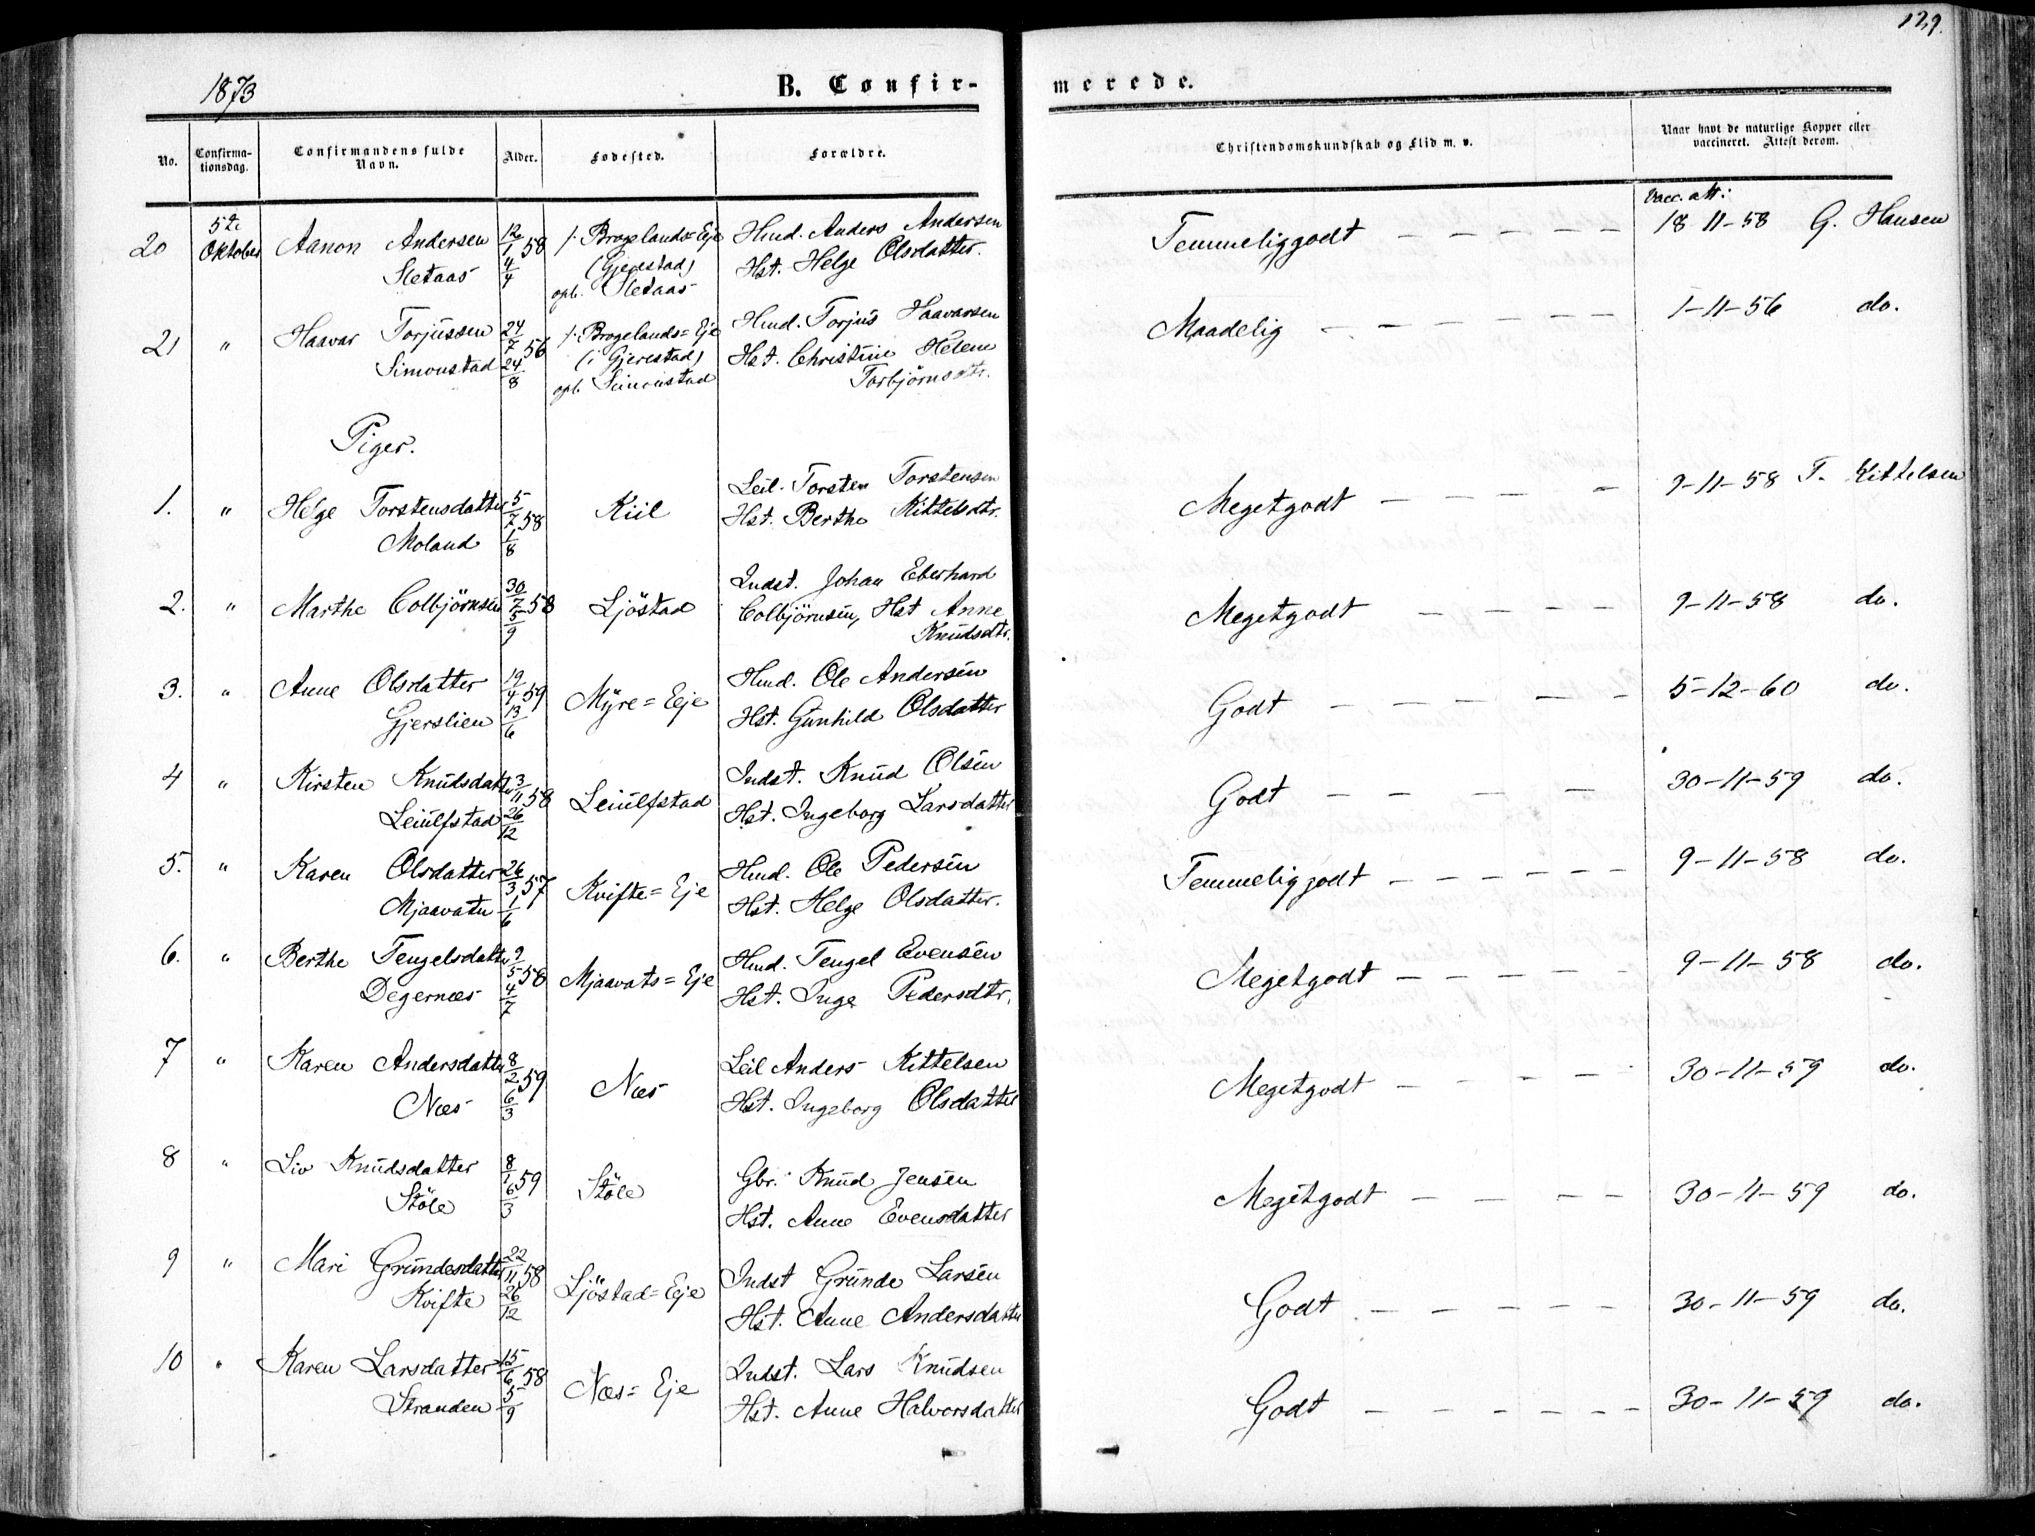 129.
1873
B. Confir-
merede.
No.
Confirma-
tionsdag.
Confirmandens fulde
Navn.
Alder.
Fødested.
Forældre.
Christendomskundskab og Flid m. v.
Naar havt de naturlige Kopper eller
vaccineret. Attest derom.
20 5te Oktober Aanon Andersen 12/1 58 f. Brogelands=Eje Hmd. Anders Andersen Temmeliggodt Vacc. att: 18-11-58 G. Hansen
Sletaas 4/4 (Gjerestad) Hst. Helge Olsdatter.
opl. Sletaas
21 " Haavar Torjussen 24/7 56 f. Brogelands=Eje Hmd. Torjus Haavarsen Maadelig 1-11-56 do.
Simonstad 24/8 (i Gjerestad) Hst. Christine Helene
opl. Simonstad Torbjørnsdtr.
Piger.
1. " Helge Torstensdatter 5/7 58 Kiil Leil. Torsten Torstensen Megetgodt 9-11-58 T. Kittelsen
Moland 1/8 Hst. Berthe Kittelsdtr.
2. " Marthe Colbjörnsen 30/7 58 Ljöstad Indst. Johan Eberhard Megetgodt 9-11-58 do.
5/9 Colbjörnsen, Hst Anne
Knudsdtr.
3. " Anne Olsdatter 19/4 59 Myre=Eje Hmd. Ole Andersen Godt 5-12-60 do.
Gjerslien 13/6 Hst. Gunhild Olsdatter
4 " Kirsten Knudsdatter 3/11 58 Leiulfstad Indst. Knud Olsen Godt 30-11-59 do.
Leiulfstad 26/12 Hst. Ingeborg Larsdatter
5. " Karen Olsdatter 26/3 57 Kvifte=Eje Hmd. Ole Pedersen Temmeliggodt 9-11-58 do.
Mjaavatn 1/6 Hst. Helge Olsdatter.
6. " Berthe Tengelsdatter 9/5 58 Mjaavats=Eje Hmd. Tengel Evensen Megetgodt 9-11-58 do.
Degernæs 4/7 Hst. Inge Pedersdtr.
7 " Karen Andersdatter 8/2 59 Næs Leil Anders Kittelsen Megetgodt 30-11-59 do.
Næs 6/3 Hst. Ingeborg Olsdatter
8 " Liv Knudsdatter 8/1 59 Stöle Gbr. Knud Jensen Megetgodt 30-11-59 do.
Stöle 6/3 Hst. Anne Evensdatter
9 " Mari Grundesdatter 22/11 58 Ljöstad=Eje Indst Grunde Larsen Godt 30-11-59 do.
Kvifte 26/12 Hst. Anne Andersdatter
10 " Karen Larsdatter 15/6 58 Næs=Eje Indst. Lars Knudsen Godt 30-11-59 do.
Stranden 5/9 Hst. Anne Halvorsdatter